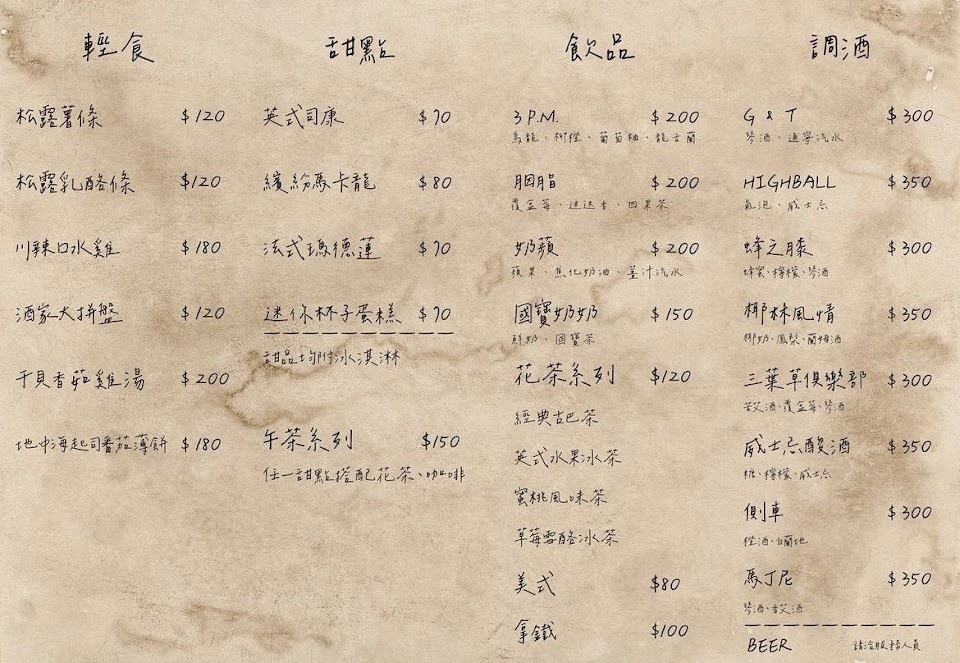 輕食
松露薯條 $120
松露乳酪條 $120
川辣口水雞 $180
酒家大拼盤 $120
干貝香菇雞湯 $200
地中海起司番茄薄餅 $180
甜點
英式司康 $70
繽紛馬卡龍 $80
法式瑪德蓮 $70
迷你杯子蛋糕 $70
甜品均附冰淇淋
午茶系列 $150
任一甜點搭配花茶、咖啡
飲品
3 P.M. $200
烏龍、柳橙、葡萄柚、龍舌蘭
胭脂 $200
覆盆莓、迷迭香、四果茶
奶蘋 $200
蘋果、焦化奶油、薑汁汽水
國寶奶奶 $150
鮮奶、國寶茶
花茶系列 $120
經典古巴茶
英式水果冰茶
蜜桃風味茶
草莓雪酪冰茶
美式 $80
拿鐵 $100
調酒
G & T $300
琴酒、通寧汽水
HIGHBALL $350
氣泡、威士忌
蜂之膝 $300
蜂蜜、檸檬、琴酒
椰林風情 $350
椰奶、鳳梨、蘭姆酒
三葉草俱樂部 $300
苦艾酒、覆盆莓、琴酒
威士忌酸酒 $350
糖、檸檬、威士忌
側車 $300
橙酒、白蘭地
馬丁尼 $350
琴酒、香艾酒
BEER 請洽服務人員